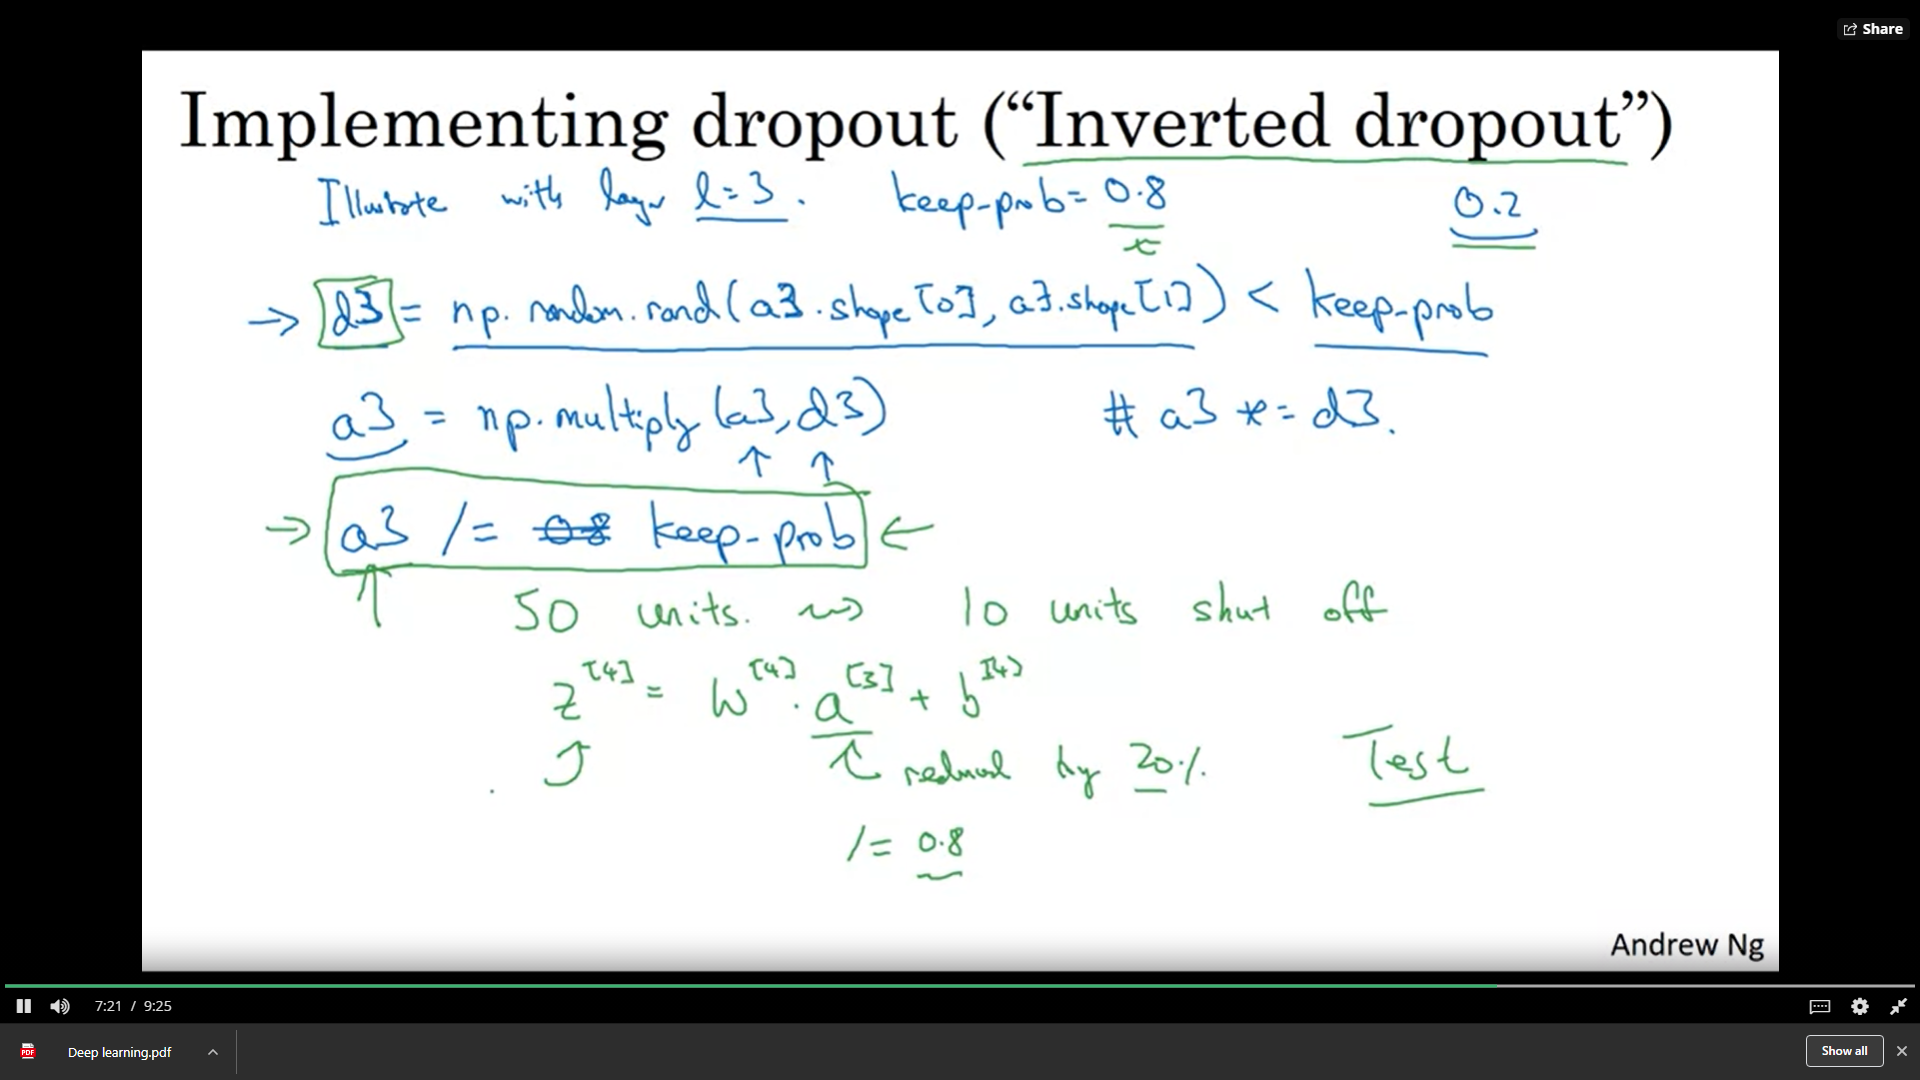 Share
Implementing dropout (“Inverted dropout”)
Illustrate with layer l=3. keep-prob= 0.8 0.2
→ d3 = np.random.rand(a3.shape[0], a3.shape[1]) < keep-prob
a3 = np.multiply(a3, d3) # a3 *= d3.
↑ ↑
→ a3 /= 0.8 keep-prob ←
↑ 50 units. ⇝ 10 units shut off
z^[4] = W^[4] · a^[3] + b^[4]
reduced by 20%. Test
/= 0.8
Andrew Ng
7:21 / 9:25
PDF Deep learning.pdf Show all